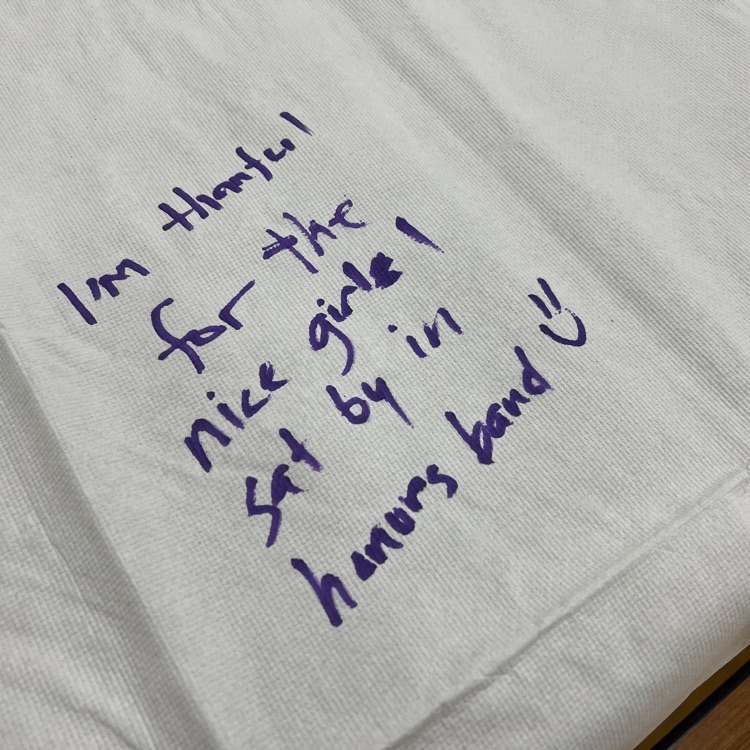 I'm thankful
for the
nice girls I
sat by in
honors band :)